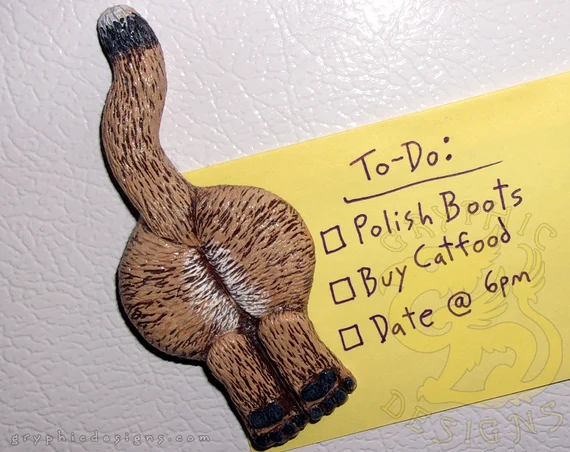 To-Do:
Polish Boots
Buy Catfood
Date @ 6pm
GRYPHIC
DESIGNS
gryphicdesigns.com